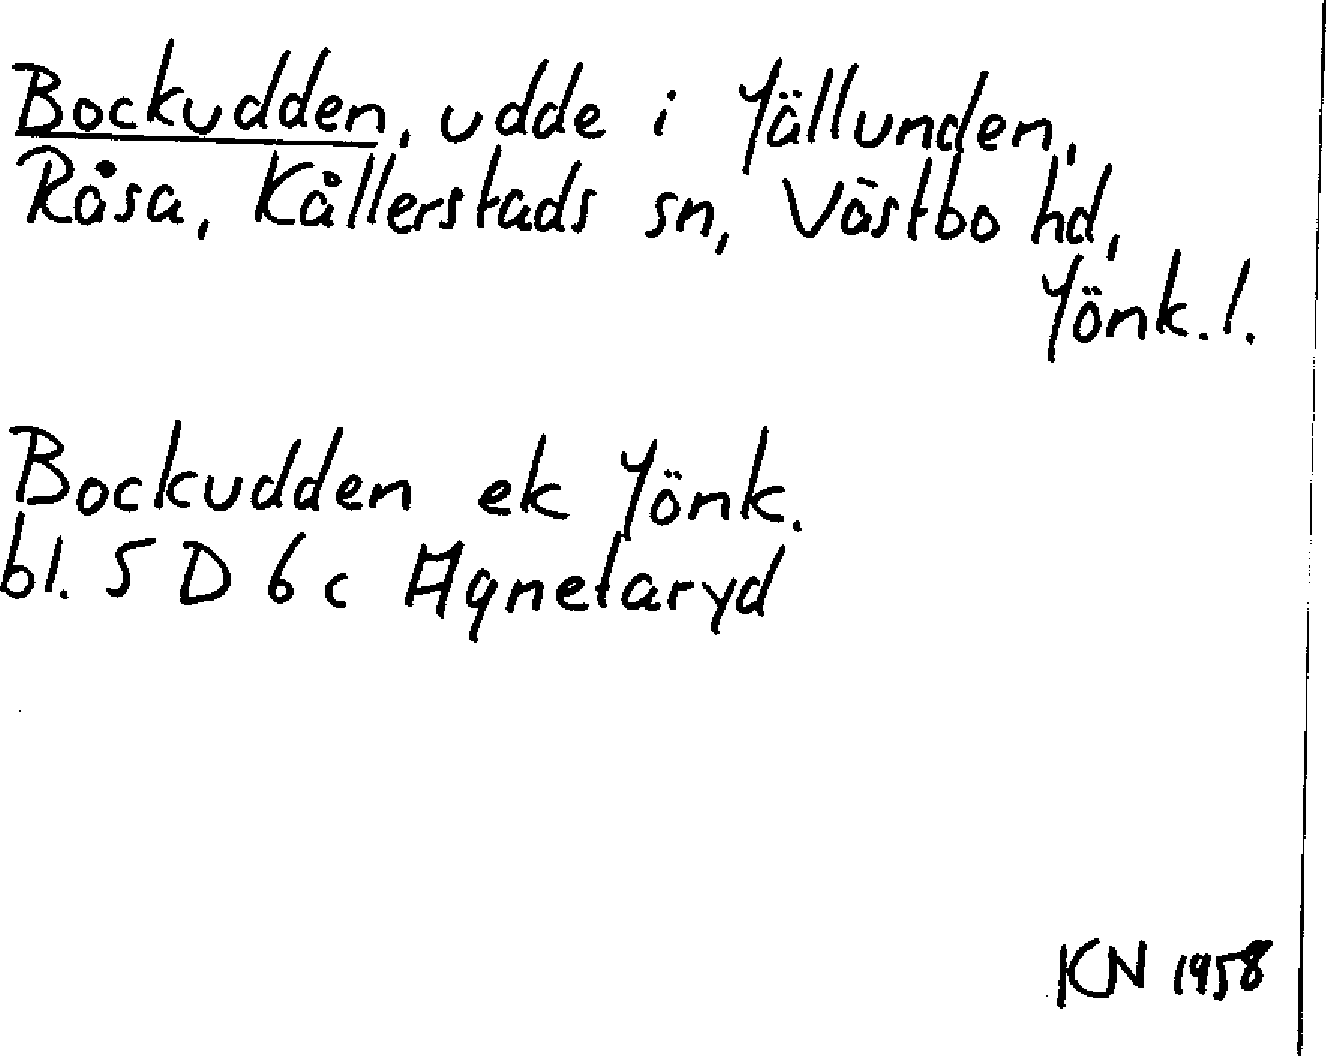 Bockudden, udde i Jällunden,
Råsa, Kållerstads sn, Västbo hd,
Jönk. l.
Bockudden ek Jönk.
bl. 5 D 6 c Agnetaryd
KN 1958